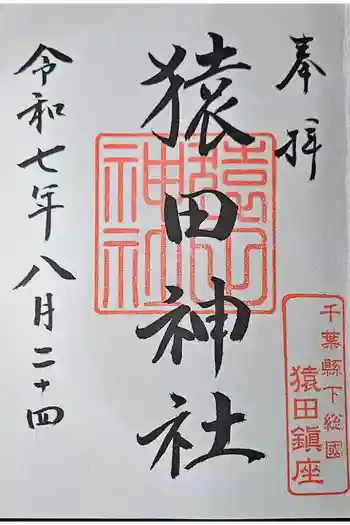 奉拝
千葉縣下総國
猿田鎮座
猿田神社
猿田神社
令和七年八月二十四